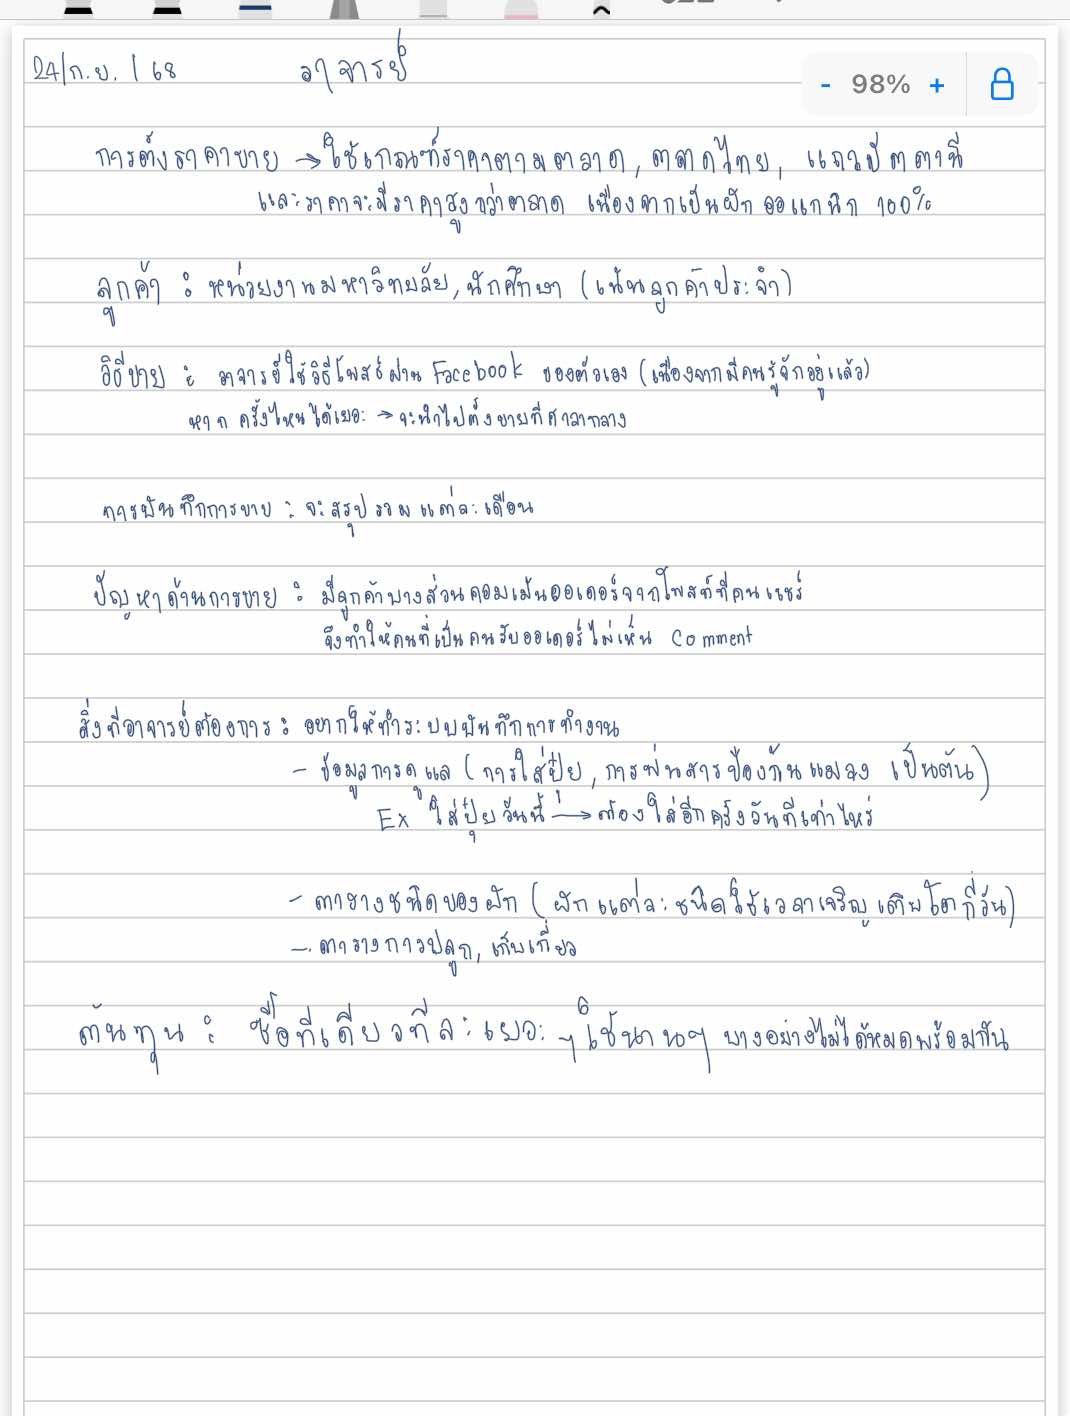 98%
24/ก.ย. / 68 อาจารย์
การตั้งราคาขาย → ใช้เกณฑ์ราคาตามตลาด, ตลาดไทย, แถวปัตตานี
และราคาจะมีราคาสูงกว่าตลาด เนื่องจากเป็นผัก ออแกนิก 100%
ลูกค้า : หน่วยงานมหาวิทยลัย, นักศึกษา (เน้นลูกค้าประจำ)
วิธีขาย : อาจารย์ใช้วิธีโพสต์ผ่าน Facebook ของตัวเอง (เนื่องจากมีคนรู้จักอยู่แล้ว)
หาก ครั้งไหนได้เยอะ → จะนำไปตั้งขายที่ศาลากลาง
การบันทึกการขาย : จะสรุปรวมแต่ละเดือน
ปัญหาด้านการขาย : มีลูกค้าบางส่วนคอมเม้นออเดอร์จากโพสท์ที่คนแชร์
จึงทำให้คนที่เป็นคนรับออเดอร์ไม่เห็น Comment
สิ่งที่อาจารย์ต้องการ : อยากให้ทำระบบบันทึกการทำงาน
- ข้อมูลการดูแล (การใส่ปุ๋ย, การพ่นสารป้องกันแมลง เป็นต้น)
Ex ใส่ปุ๋ยวันนี้ → ต้องใส่อีกครั้งวันที่เท่าไหร่
- ตารางชนิดของผัก (ผักแต่ละชนิดใช้เวลาเจริญเติบโตกี่วัน)
- ตารางการปลูก, เก็บเกี่ยว
ต้นทุน : ซื้อทีเดียวทีละเยอะๆ ใช้นานๆ บางอย่างไม่ได้หมดพร้อมกัน